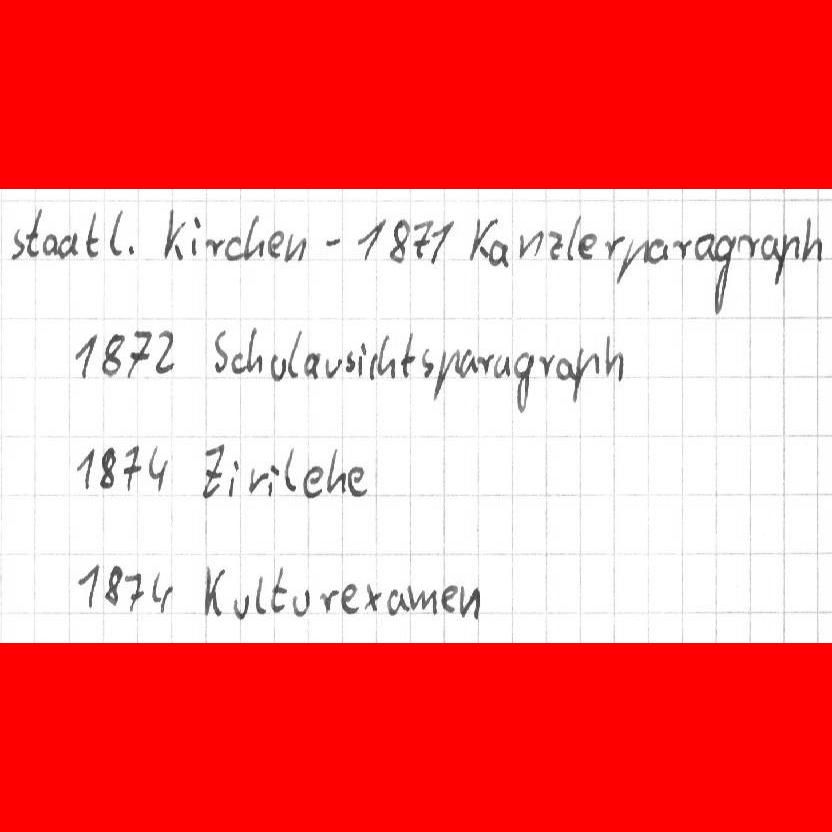 staatl. Kirchen - 1871 Kanzlerparagraph
1872 Schulausichtsparagraph
1874 Zivilehe
1874 Kulturexamen